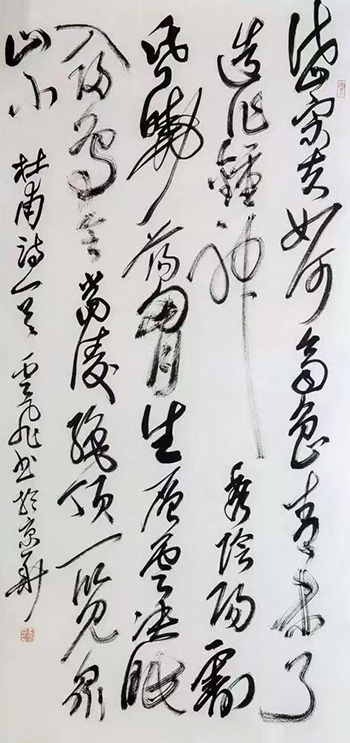 岱宗夫如何齊魯青未了
造化鍾神秀陰陽割
昏曉蕩胸生層雲決眥
入歸鳥會當凌絕頂一覽眾
山小 杜甫詩一首 雲飛書於京華